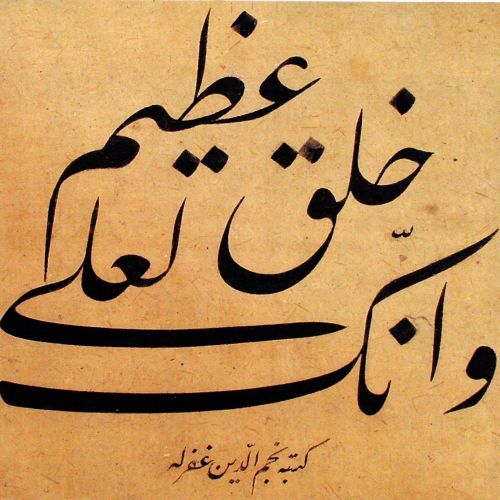 وانّک لعلی
خلق عظیم
کتبه نجم الدّین غفرله